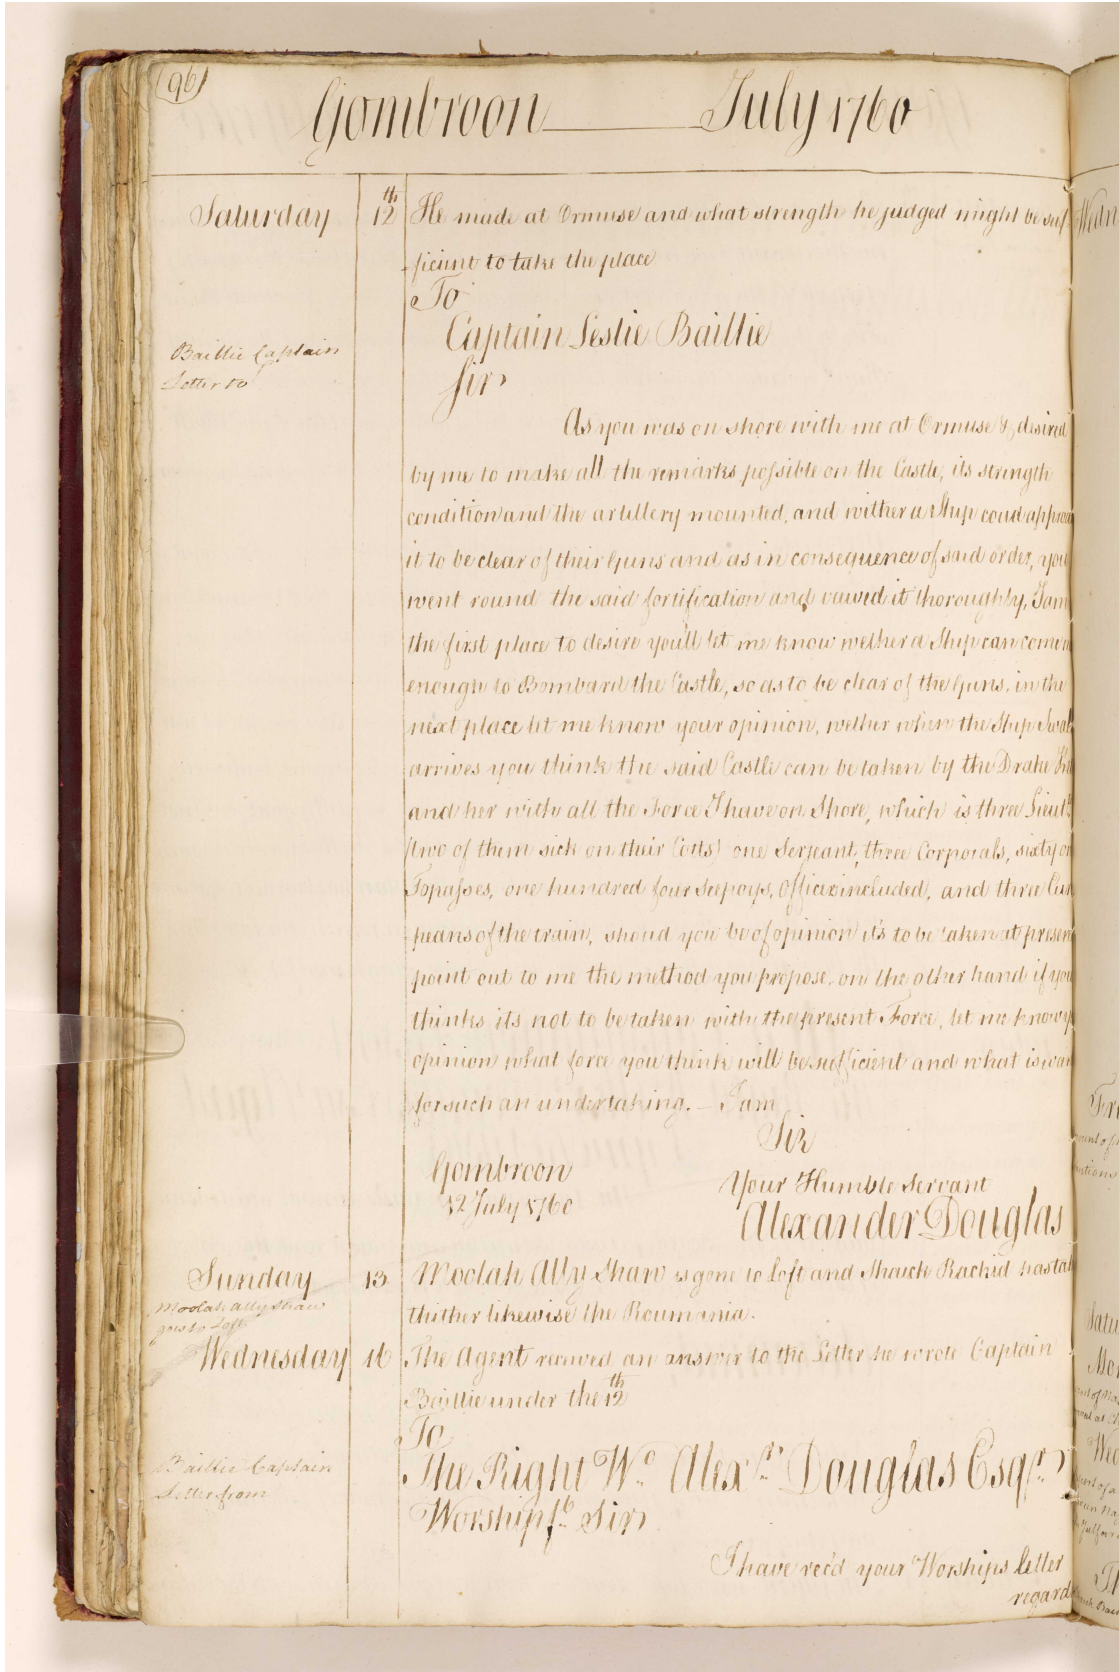 96
Gombroon July 1760
Saturday 12th He made at Ormuse and what strength he judged might be suf-
-ficient to take the place
To
Captain Leslie Baillie
Baillie Captain
Letter to
Sir
As you was on shore with me at Ormuse & desired
by me to make all the remarks possible on the Castle, its strength
condition and the artillery mounted, and wither a Ship coud approa
it to be clear of their Guns and as in consequence of said order, you
went round the said fortification and vawed it thoroughly, I am
the first place to desire you'll let me know wether a Ship can come n
enough to Bombard the Castle, so as to be clear of the Guns, in the
next place let me know your opinion, wether when the Ship Swal
arrives you think the said Castle can be taken by the Drake
and her with all the Force I have on Shore, which is three Lieuts
(two of them sick on their Cotts) one Serjeant, three Corporals, sixty on
Topasses, one hundred four Seepoys, Officers included, and three Eur
peans of the train, shoud you be of opinion it's to be taken at presen
point out to me the method you propose, on the other hand if you
thinks its not to be taken with the present Force, let me know y
opinion what force you think will be sufficient and what is wan
for such an undertaking. — I am
Sir
Gombroon
12 July 1760
Your Humble Servant
Alexander Douglas
Sunday 13 Moolah Ally Shaw is gone to Loft and Shaick Rachid has tak
thither likewise the Roumania.
Moolah Ally Shaw
goes to Loft
Wednesday 16 The Agent received an answer to the Letter he wrote Captain
Baillie under the 12th
To
The Right Wo. Alexr. Douglas Esqr.
Baillie Captain
Letter from
Worshipfl. Sir
I have rec'd your Worships letter
regard